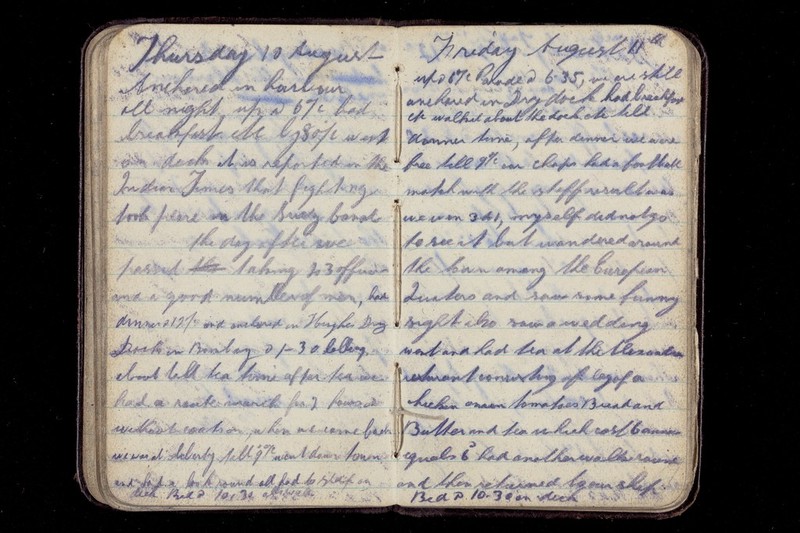 Thursday 10 August
Anchored in harbour
all night, up @ 6 had
breakfast etc went
on deck it is reported in the
Indian Times that fighting
took place in the Suez Canal
the day after we
passed taking officers
and a good number of men, had
dinner @ 12 and entered in Hughes Dry
Dock in Bombay @ 1-30 lolling
about till tea time after tea we
had a route march for
without coats on, when we came back
we were at liberty till 9 went down town
and had a look round all had to sleep on
deck Bed @ 10.30
Friday August 11th
up @ 6 Parade @ 6.35, we are still
anchored in Dry dock had breakfast
etc walked about the dock etc till
dinner time, after dinner we were
free till 9 our chaps had a football
match with the staff result was
we won 3 d 1, myself did not go
to see it but wandered around
the town among the European
Quaters and saw some funny
sight also saw a wedding
went and had tea at the Alexandra
resturant consisting of
chicken onion tomatoes Bread and
Butter and tea which cost 6 annas
equals 6d had another walk round
and then returned to our ship
Bed @ 10.30 on deck